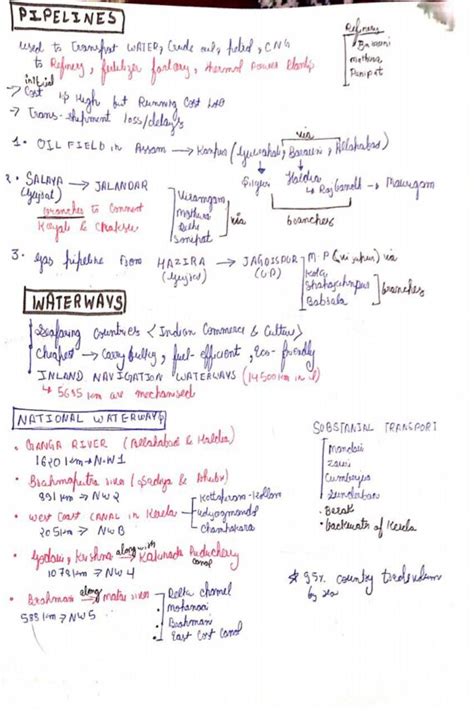 PIPELINES
used to Transport WATER, Crude oil, petrol, CNG
to Refinery, fertilizer factory, thermal Power Plants
Refinery
Barauni
Mathura
Panipat
initial
→ Cost is High but Running Cost less
→ Trans-shipment loss/delays
1. OIL FIELD in Assam → Kanpur (Guwahati, Barauni, Allahabad)
via
Haldia
→ Rajbandh → Maurigam
branches
2. SALAYA → JALANDAR
(Gujrat)
Viramgam
Mathura
Delhi
Sonipat
via
branches to connect
Koyali & Chakshu
3. Gas pipeline from HAZIRA → JAGDISPUR
(Gujrat) (UP)
M.P (Vijaipur) via
Kota
Shahajahnpur
Babrala
branches
WATERWAYS
Seafaring Countries (Indian Commerce & Culture)
Cheapest → Carry bulky, fuel-efficient, Eco-friendly
INLAND NAVIGATION WATERWAYS (14500 km in
↳ 5685 km are mechanised
NATIONAL WATERWAYS
• GANGA RIVER (Allahabad & Haldia)
1620 km → N.W 1
• Brahmaputra river (Sadiya & Dhubri)
891 km → NW 2
• West Coast CANAL in Kerela
205 km → NW 3
Kottapuram-Kollam
Udyogmondol
Champakara
• Godavari, Krishna along with Kakinada Puducherry
canal
1078 km → NW 4
• Brahmani along matai river
588 km → NW 5
Delta channel
• Mahanadi
• Brahmani
• East Cost Canal
SUBSTANIAL TRANSPORT
Mandavi
Zuari
Cumberjua
Sunderban
• Barak
• backwaters of Kerela
* 95% country trade volum
by sea